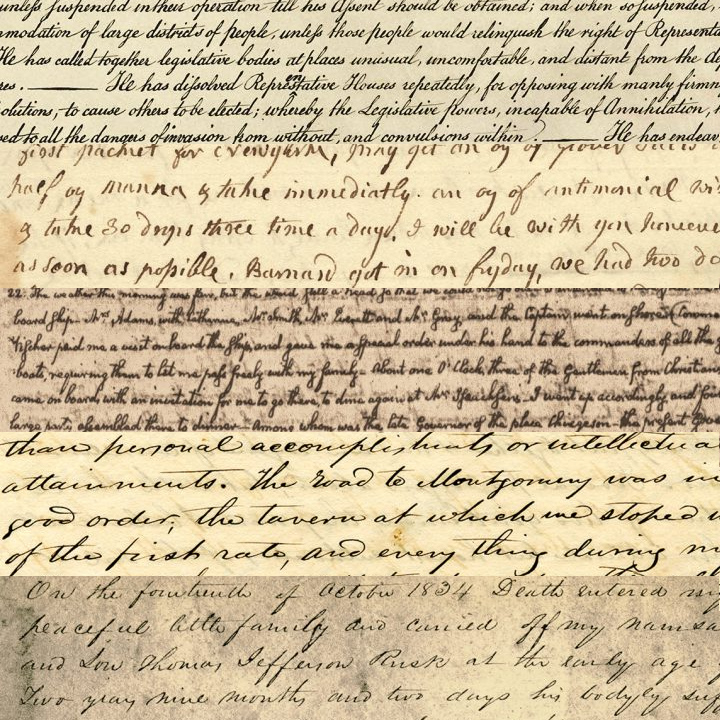 unless suspended in their operation till his Assent should be obtained; and when so suspended,
mmodation of large districts of people, unless those people would relinquish the right of Representa
He has called together legislative bodies at places unusual, uncomfortable, and distant from the de
res. ——— He has dissolved Representative Houses repeatedly, for opposing with manly firmn
olutions, to cause others to be elected; whereby the Legislative powers, incapable of Annihilation,
sed to all the dangers of invasion from without, and convulsions within. ——— He has endeav
first packet for may get an oz of
half oz manna & take immediately. an oz of antimonial wi
& take 30 drops three time a day. I will be with you however
as soon as possible. Barnard got in on fryday, we had two da
22. The weather this morning was fair, but the wind still a head so that we could
board ship. Mrs Adams, with Catherine, Mr Smith, Mr Everett and Mr Gray, and the Captain went on shore. Commo
Fischer paid me a visit on board the ship and gave me a special order under his hand to the commanders of all the g
boats, requiring them to let me pass freely with my family. About one O'Clock, three of the Gentlemen from Christian
came on board, with an invitation for me to go there, to dine again at Mr I went up accordingly and fou
large party assembled there to dinner—Among whom was the late Governor of the place the present Gove
than personal accomplishments or intellectual
attainments. The road to Montgomery was in
good order, the tavern at which we stoped w
of the first rate, and every thing during m
On the fourteenth of October 1834 Death entered my
peaceful little family and carried off my namesa
and Son Thomas Jefferson Rusk at the early age
Two years nine months and two days his bodyly suff